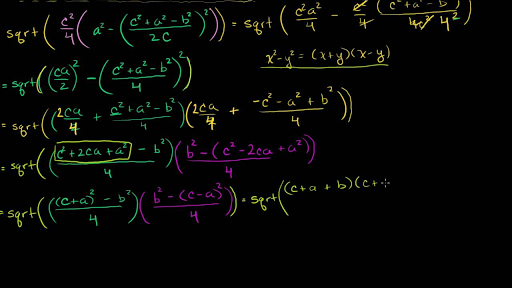 sqrt(c²/4(a² - ((c² + a² - b²)/2c)²)) = sqrt(c²a²/4 - c²/4 (c² + a² - b²)/4c² 4²
x² - y² = (x+y)(x-y)
= sqrt((ca/2)² - ((c² + a² - b²)/4)²)
= sqrt((2ca/4 + (c² + a² - b²)/4)(2ca/4 + (-c² - a² + b²)/4))
= sqrt(((c² + 2ca + a²) - b²)/4)((b² - (c² - 2ca + a²))/4)
= sqrt((((c+a)² - b²)/4)((b² - (c-a)²)/4)) = sqrt(((c+a+b)(c+